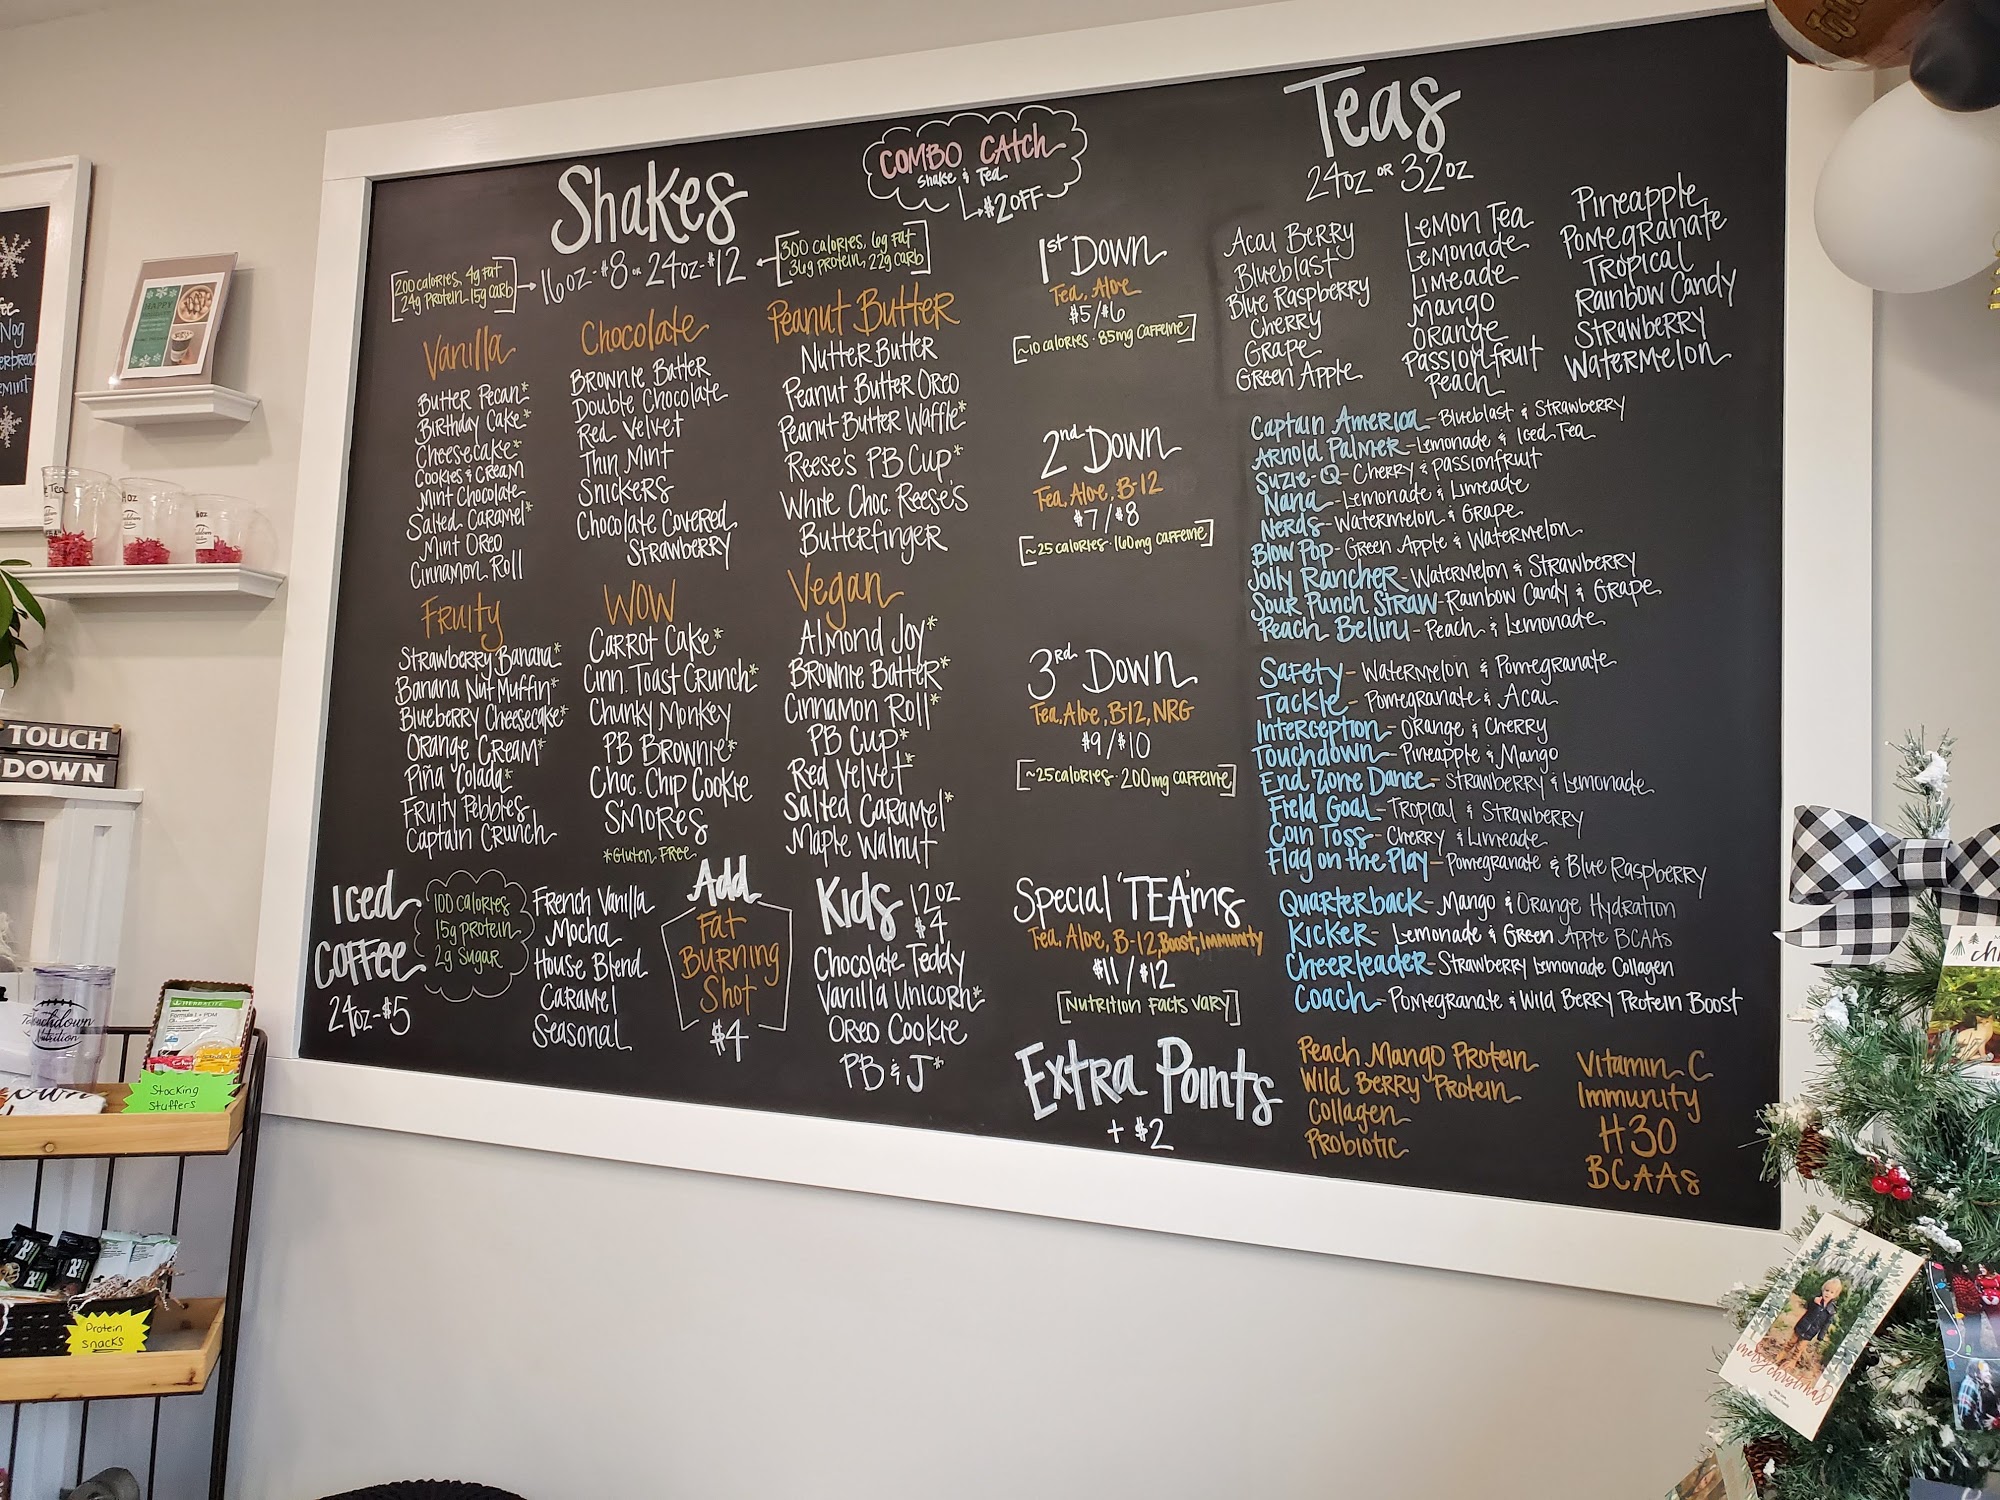 COMBO CAtch
Shake & Tea
$2 OFF
Shakes
200 calories, 4g fat
24g protein 15g carb
16oz-$8 or 24oz-$12
300 calories, 6g fat
36g protein, 22g carb
Vanilla
Butter Pecan*
Birthday Cake*
Cheesecake*
Cookies & Cream
Mint Chocolate
Salted Caramel*
Mint Oreo
Cinnamon Roll
Chocolate
Brownie Batter
Double Chocolate
Red Velvet
Thin Mint
Snickers
Chocolate Covered
Strawberry
Peanut Butter
Nutter Butter
Peanut Butter Oreo
Peanut Butter Waffle*
Reese's PB Cup*
White Choc. Reese's
Butterfinger
Fruity
Strawberry Banana*
Banana Nut Muffin*
Blueberry Cheesecake*
Orange Cream*
Piña Colada*
Fruity Pebbles
Captain Crunch
WOW
Carrot Cake*
Cinn. Toast Crunch*
Chunky Monkey
PB Brownie*
Choc. Chip Cookie
S'mores
*Gluten Free
Vegan
Almond Joy*
Brownie Batter*
Cinnamon Roll*
PB Cup*
Red Velvet*
Salted Caramel*
Maple Walnut
Iced
Coffee
24oz-$5
100 calories
15g protein
2g sugar
French Vanilla
Mocha
House Blend
Caramel
Seasonal
Add
Fat
Burning
Shot
$4
Kids 12oz
$4
Chocolate Teddy
Vanilla Unicorn*
Oreo Cookie
PB & J*
1st Down
Tea, Aloe
$5/$6
~10 calories · 85mg caffeine
2nd Down
Tea, Aloe, B-12
$7/$8
~25 calories · 160mg caffeine
3rd Down
Tea, Aloe, B-12, NRG
$9/$10
~25 calories · 200mg caffeine
Special 'TEA'ms
Tea, Aloe, B-12, Boost, Immunity
$11/$12
Nutrition Facts Vary
Extra Points
+ $2
Teas
24oz or 32oz
Acai Berry
Blueblast
Blue Raspberry
Cherry
Grape
Green Apple
Lemon Tea
Lemonade
Limeade
Mango
Orange
Passionfruit
Peach
Pineapple
Pomegranate
Tropical
Rainbow Candy
Strawberry
Watermelon
Captain America - Blueblast & Strawberry
Arnold Palmer - Lemonade & Iced Tea
Suzie-Q - Cherry & Passionfruit
Nana - Lemonade & Limeade
Nerds - Watermelon & Grape
Blow Pop - Green Apple & Watermelon
Jolly Rancher - Watermelon & Strawberry
Sour Punch Straw - Rainbow Candy & Grape
Peach Bellini - Peach & Lemonade
Safety - Watermelon & Pomegranate
Tackle - Pomegranate & Acai
Interception - Orange & Cherry
Touchdown - Pineapple & Mango
End Zone Dance - Strawberry & Lemonade
Field Goal - Tropical & Strawberry
Coin Toss - Cherry & Limeade
Flag on the Play - Pomegranate & Blue Raspberry
Quarterback - Mango & Orange Hydration
Kicker - Lemonade & Green Apple BCAAs
Cheerleader - Strawberry Lemonade Collagen
Coach - Pomegranate & Wild Berry Protein Boost
Peach Mango Protein
Wild Berry Protein
Collagen
Probiotic
Vitamin C
Immunity
H30
BCAAs
TOUCH
DOWN
Touchdown
Nutrition
HERBALIFE
Stocking
Stuffers
Protein
snacks
merry christmas